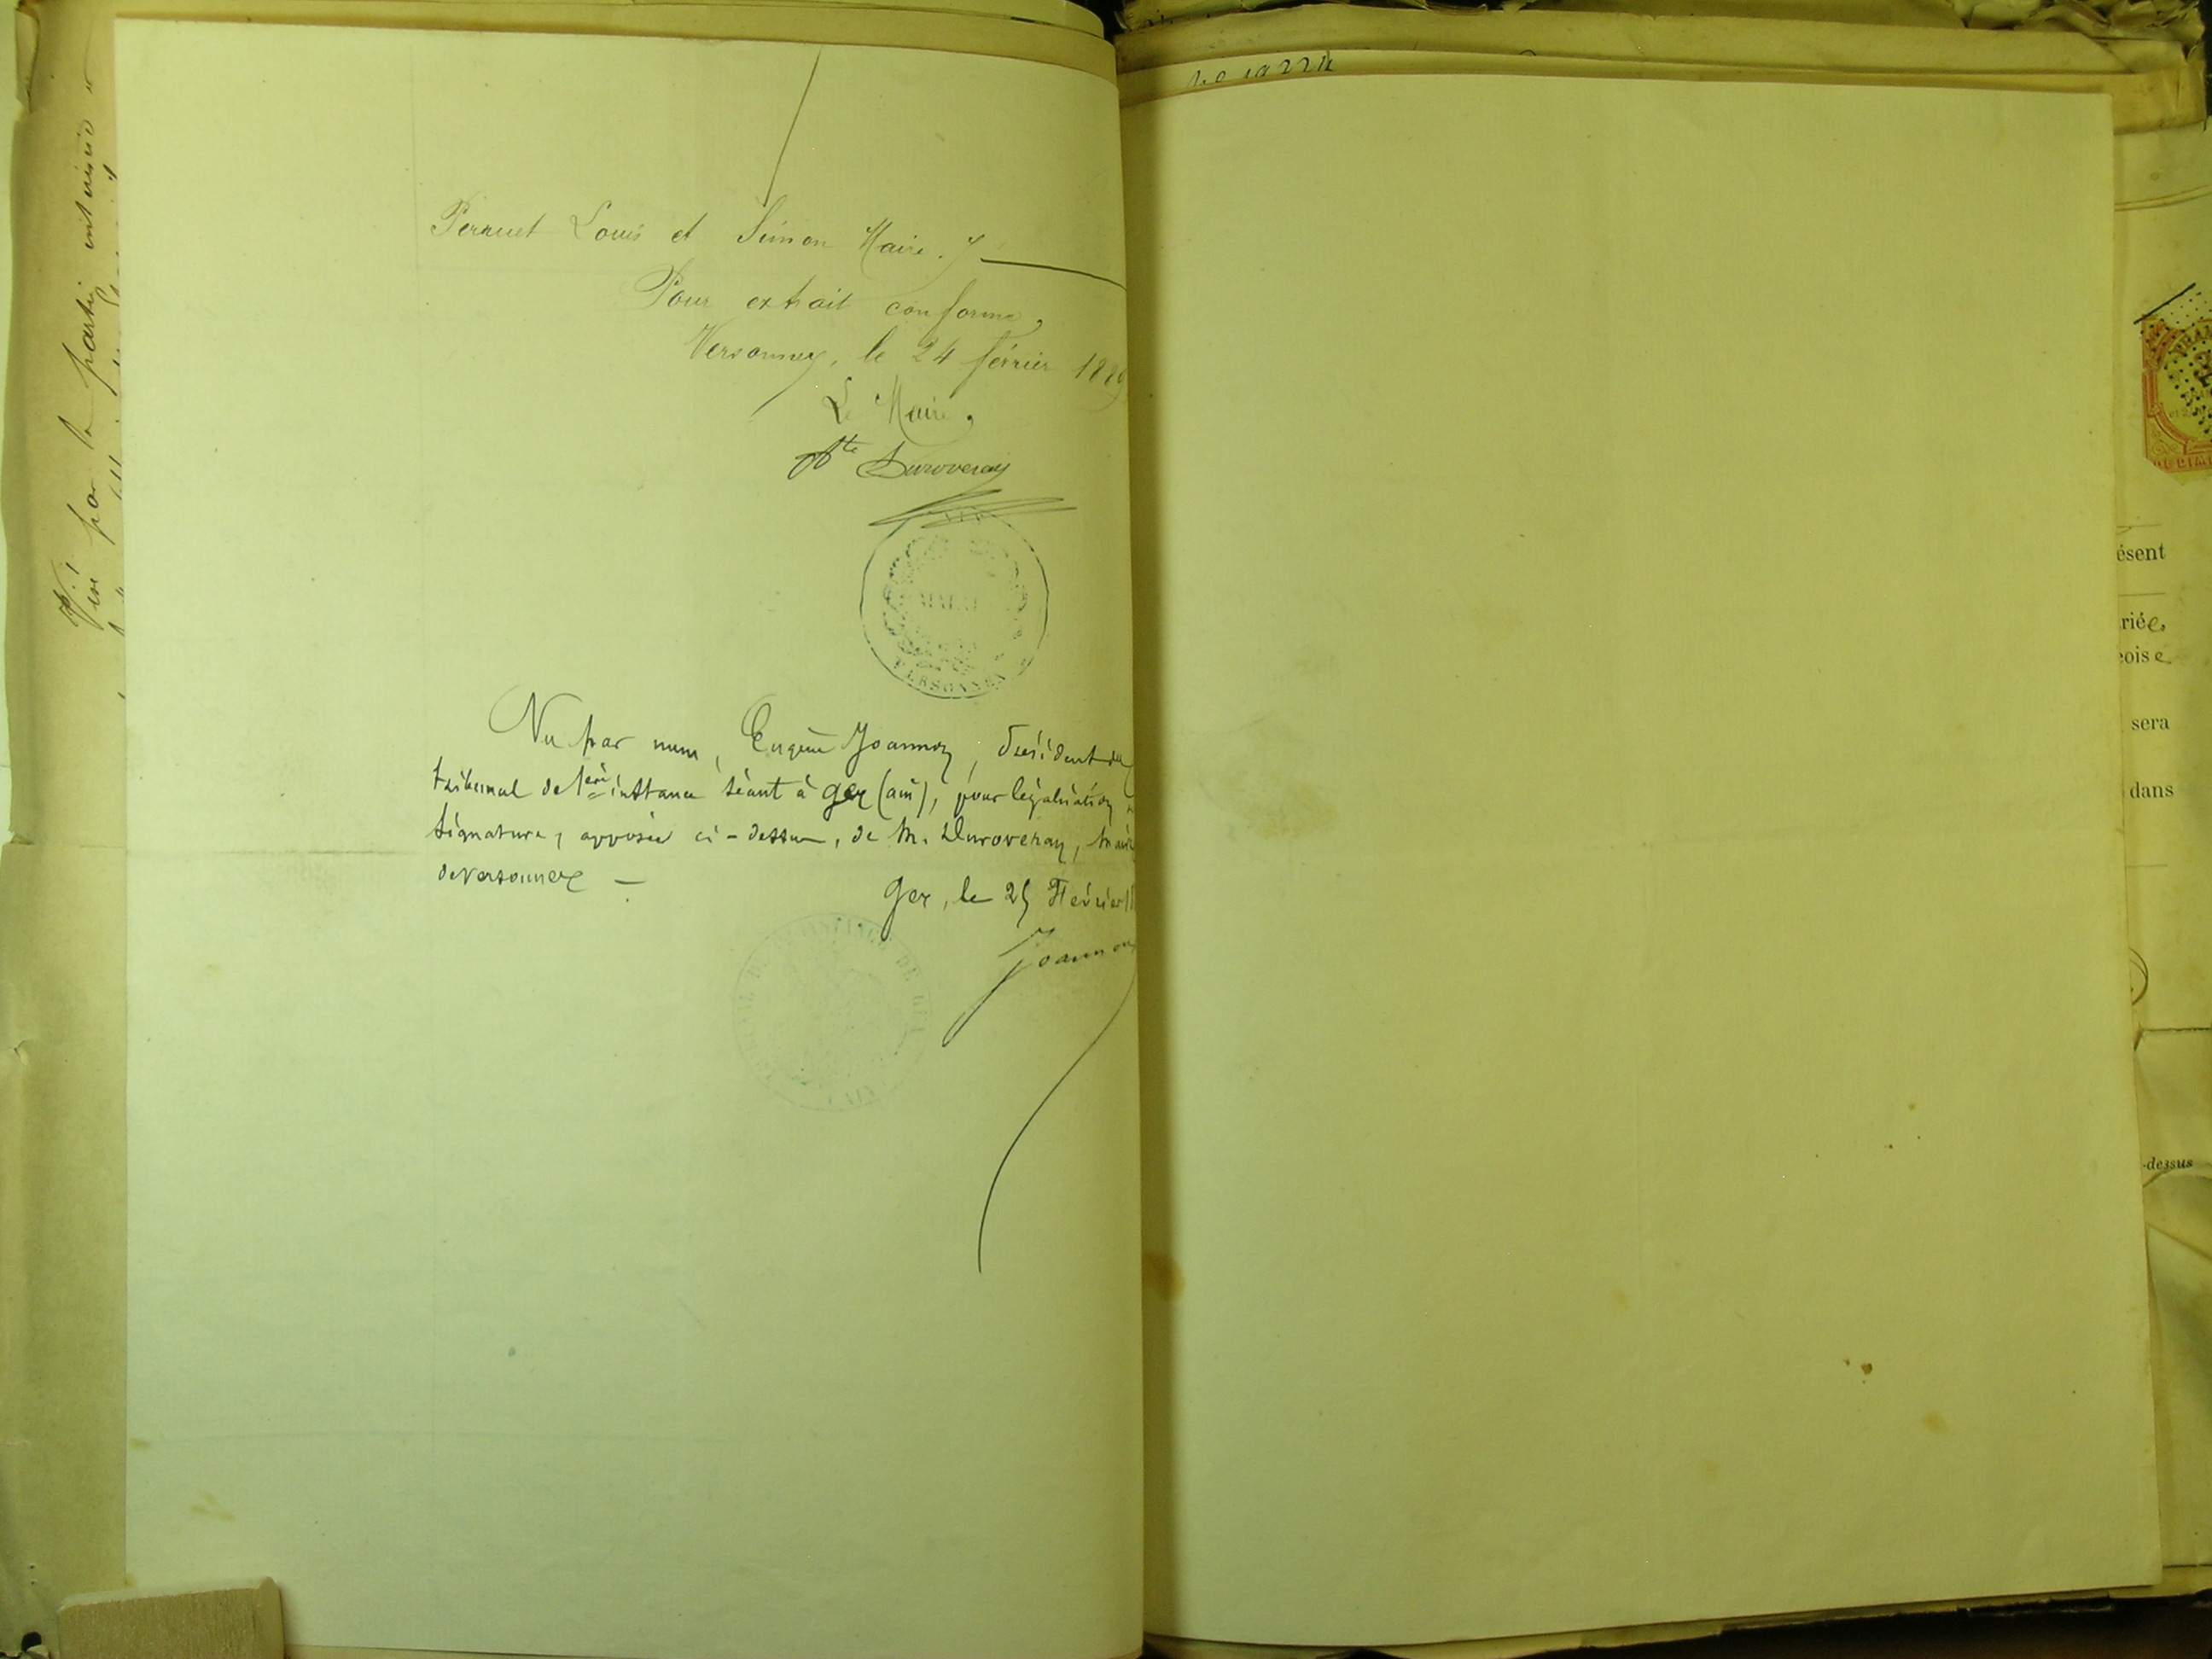 Visé par la partie
Perruet Louis et Simon Maire.
Pour extrait conforme,
Versonnex, le 24 février 1889
Le Maire,
Duroveray
MAIRIE
VERSONNEX
Vu par nous, Eugène Joannon, Président du
tribunal de 1ère instance séant à Gex (ain), pour légalisation
signature, apposée ci-dessus, de M. Duroveray, maire
de Versonnex —
Gex, le 25 Février
Joannon
ésent
rié e
eois e
sera
dans
-dessus